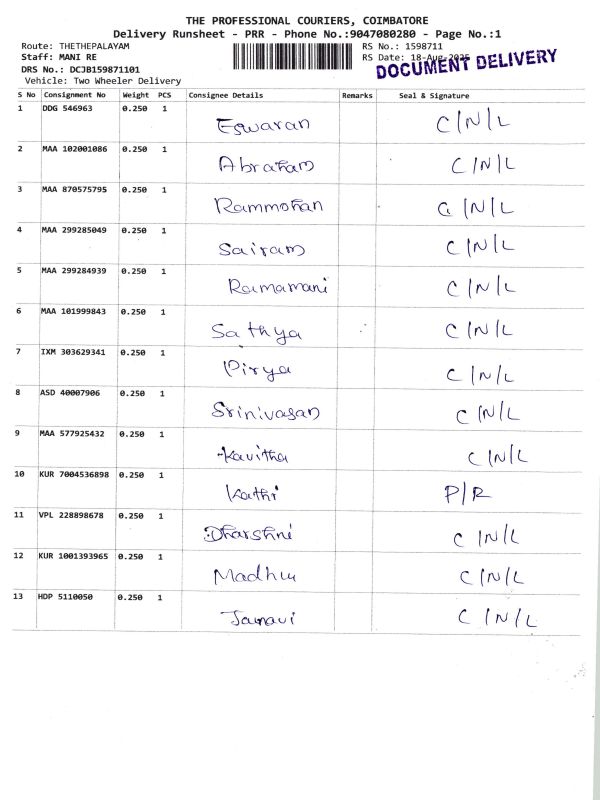 THE PROFESSIONAL COURIERS, COIMBATORE
Delivery Runsheet - PRR - Phone No.:9047080280 - Page No.:1
Route: THETHEPALAYAM RS No.: 1598711
Staff: MANI RE RS Date: 18-Aug-2025
DOCUMENT DELIVERY
DRS No.: DCJB159871101
Vehicle: Two Wheeler Delivery
S No Consignment No Weight PCS Consignee Details Remarks Seal & Signature
1 DDG 546963 0.250 1 Eswaran C/N/L
2 MAA 102001086 0.250 1 Abraham C/N/L
3 MAA 870575795 0.250 1 Rammohan C/N/L
4 MAA 299285049 0.250 1 Sairam C/N/L
5 MAA 299284939 0.250 1 Ramamani C/N/L
6 MAA 101999843 0.250 1 Sathya C/N/L
7 IXM 303629341 0.250 1 Pirya C/N/L
8 ASD 40007906 0.250 1 Srinivasan C/N/L
9 MAA 577925432 0.250 1 Kavitha C/N/L
10 KUR 7004536898 0.250 1 Kathi P/R
11 VPL 228898678 0.250 1 Dharshni C/N/L
12 KUR 1001393965 0.250 1 Madhu C/N/L
13 HDP 5110050 0.250 1 Janavi C/N/L